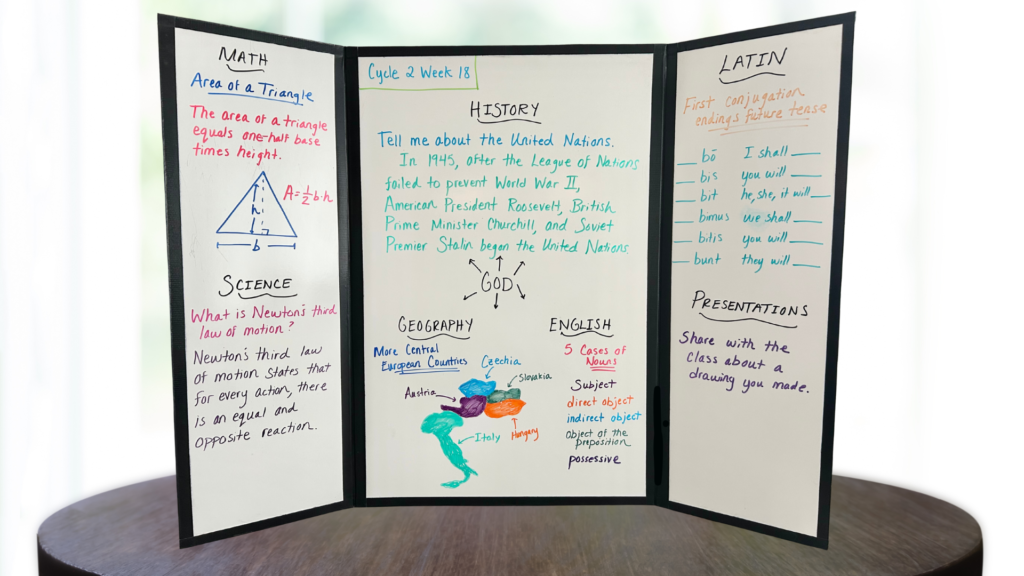 MATH
Area of a Triangle
The area of a triangle
equals one-half base
times height.
h
A=½b·h
b
SCIENCE
What is Newton's third
law of motion?
Newton's third law
of motion states that
for every action, there
is an equal and
opposite reaction.
Cycle 2 Week 18
HISTORY
Tell me about the United Nations.
In 1945, after the League of Nations
failed to prevent World War II,
American President Roosevelt, British
Prime Minister Churchill, and Soviet
Premier Stalin began the United Nations.
GOD
GEOGRAPHY
More Central
European Countries
Czechia
Slovakia
Austria
Italy
Hungary
ENGLISH
5 Cases of
Nouns
Subject
direct object
indirect object
object of the
preposition
possessive
LATIN
First conjugation
endings future tense
__ bō I shall __
__ bis you will __
__ bit he, she, it will __
__ bimus we shall __
__ bitis you will __
__ bunt they will __
PRESENTATIONS
Share with the
class about a
drawing you made.